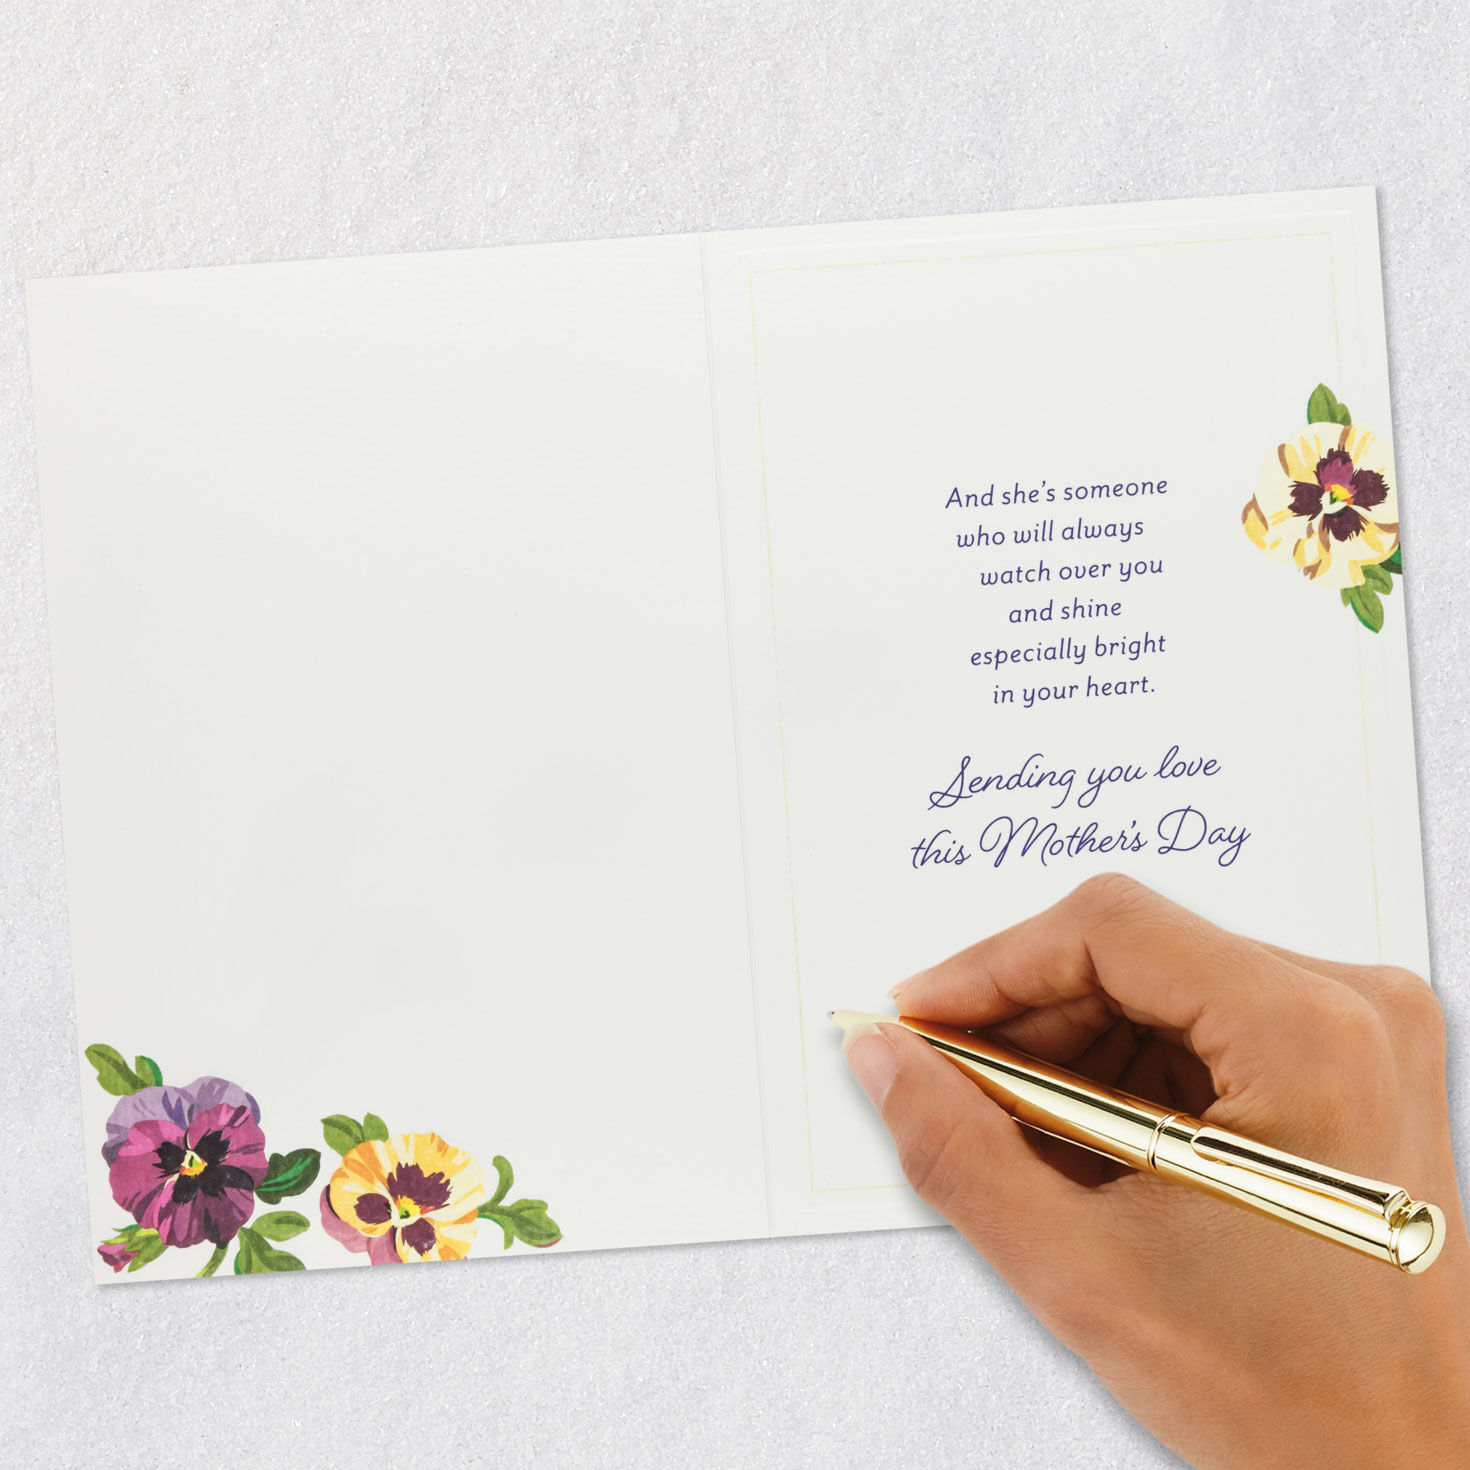 And she's someone
who will always
watch over you
and shine
especially bright
in your heart.
Sending you love
this Mother's Day